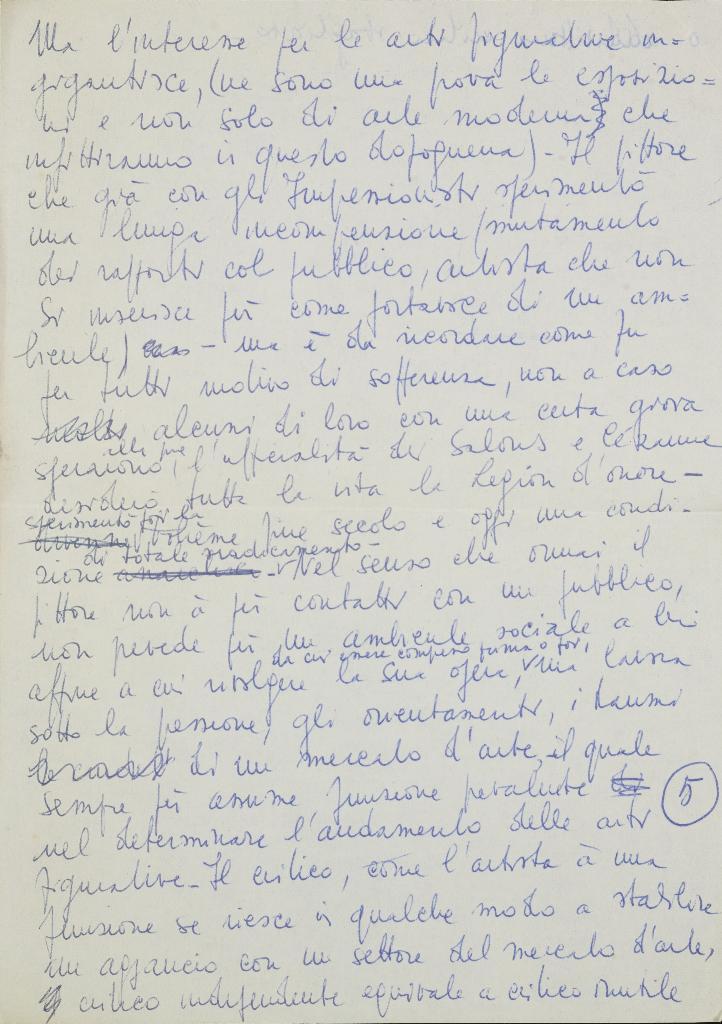 Ma l'interesse per le arti figurative in=
gigantisce, (ne sono una prova le esposizio=
ni e non solo di arte moderna che
infittiranno in questo dopoguerra) - Il pittore
che già con gli Impressionisti sperimentò
una lunga incomprensione (mutamento
dei rapporti col pubblico, artista che non
si inserisce più come portavoce di un am=
biente) - ma è da ricordare come fu
per tutti motivo di sofferenza, non a caso
alcuni di loro con una certa
l'ufficialità dei Salons e Cézanne
desiderò tutta la vita la Legion d'onore -
sperimentò poi la
bohème fine secolo e oggi una condi-
di totale sradicamento -
zione Nel senso che ormai il
pittore non à più contatti con un pubblico,
non prevede più un ambiente sociale a lui
da cui essere compreso prima o poi,
affine a cui rivolgere la sua opera, ma lavora
sotto la pressione, gli orientamenti, i
di un mercato d'arte, il quale
sempre più assume funzione prevalente
5
nel determinare l'andamento delle arti
figurative - Il critico, come l'artista à una
funzione se riesce in qualche modo a stabilire
un aggancio con un settore del mercato d'arte,
critico indipendente equivale a critico inutile